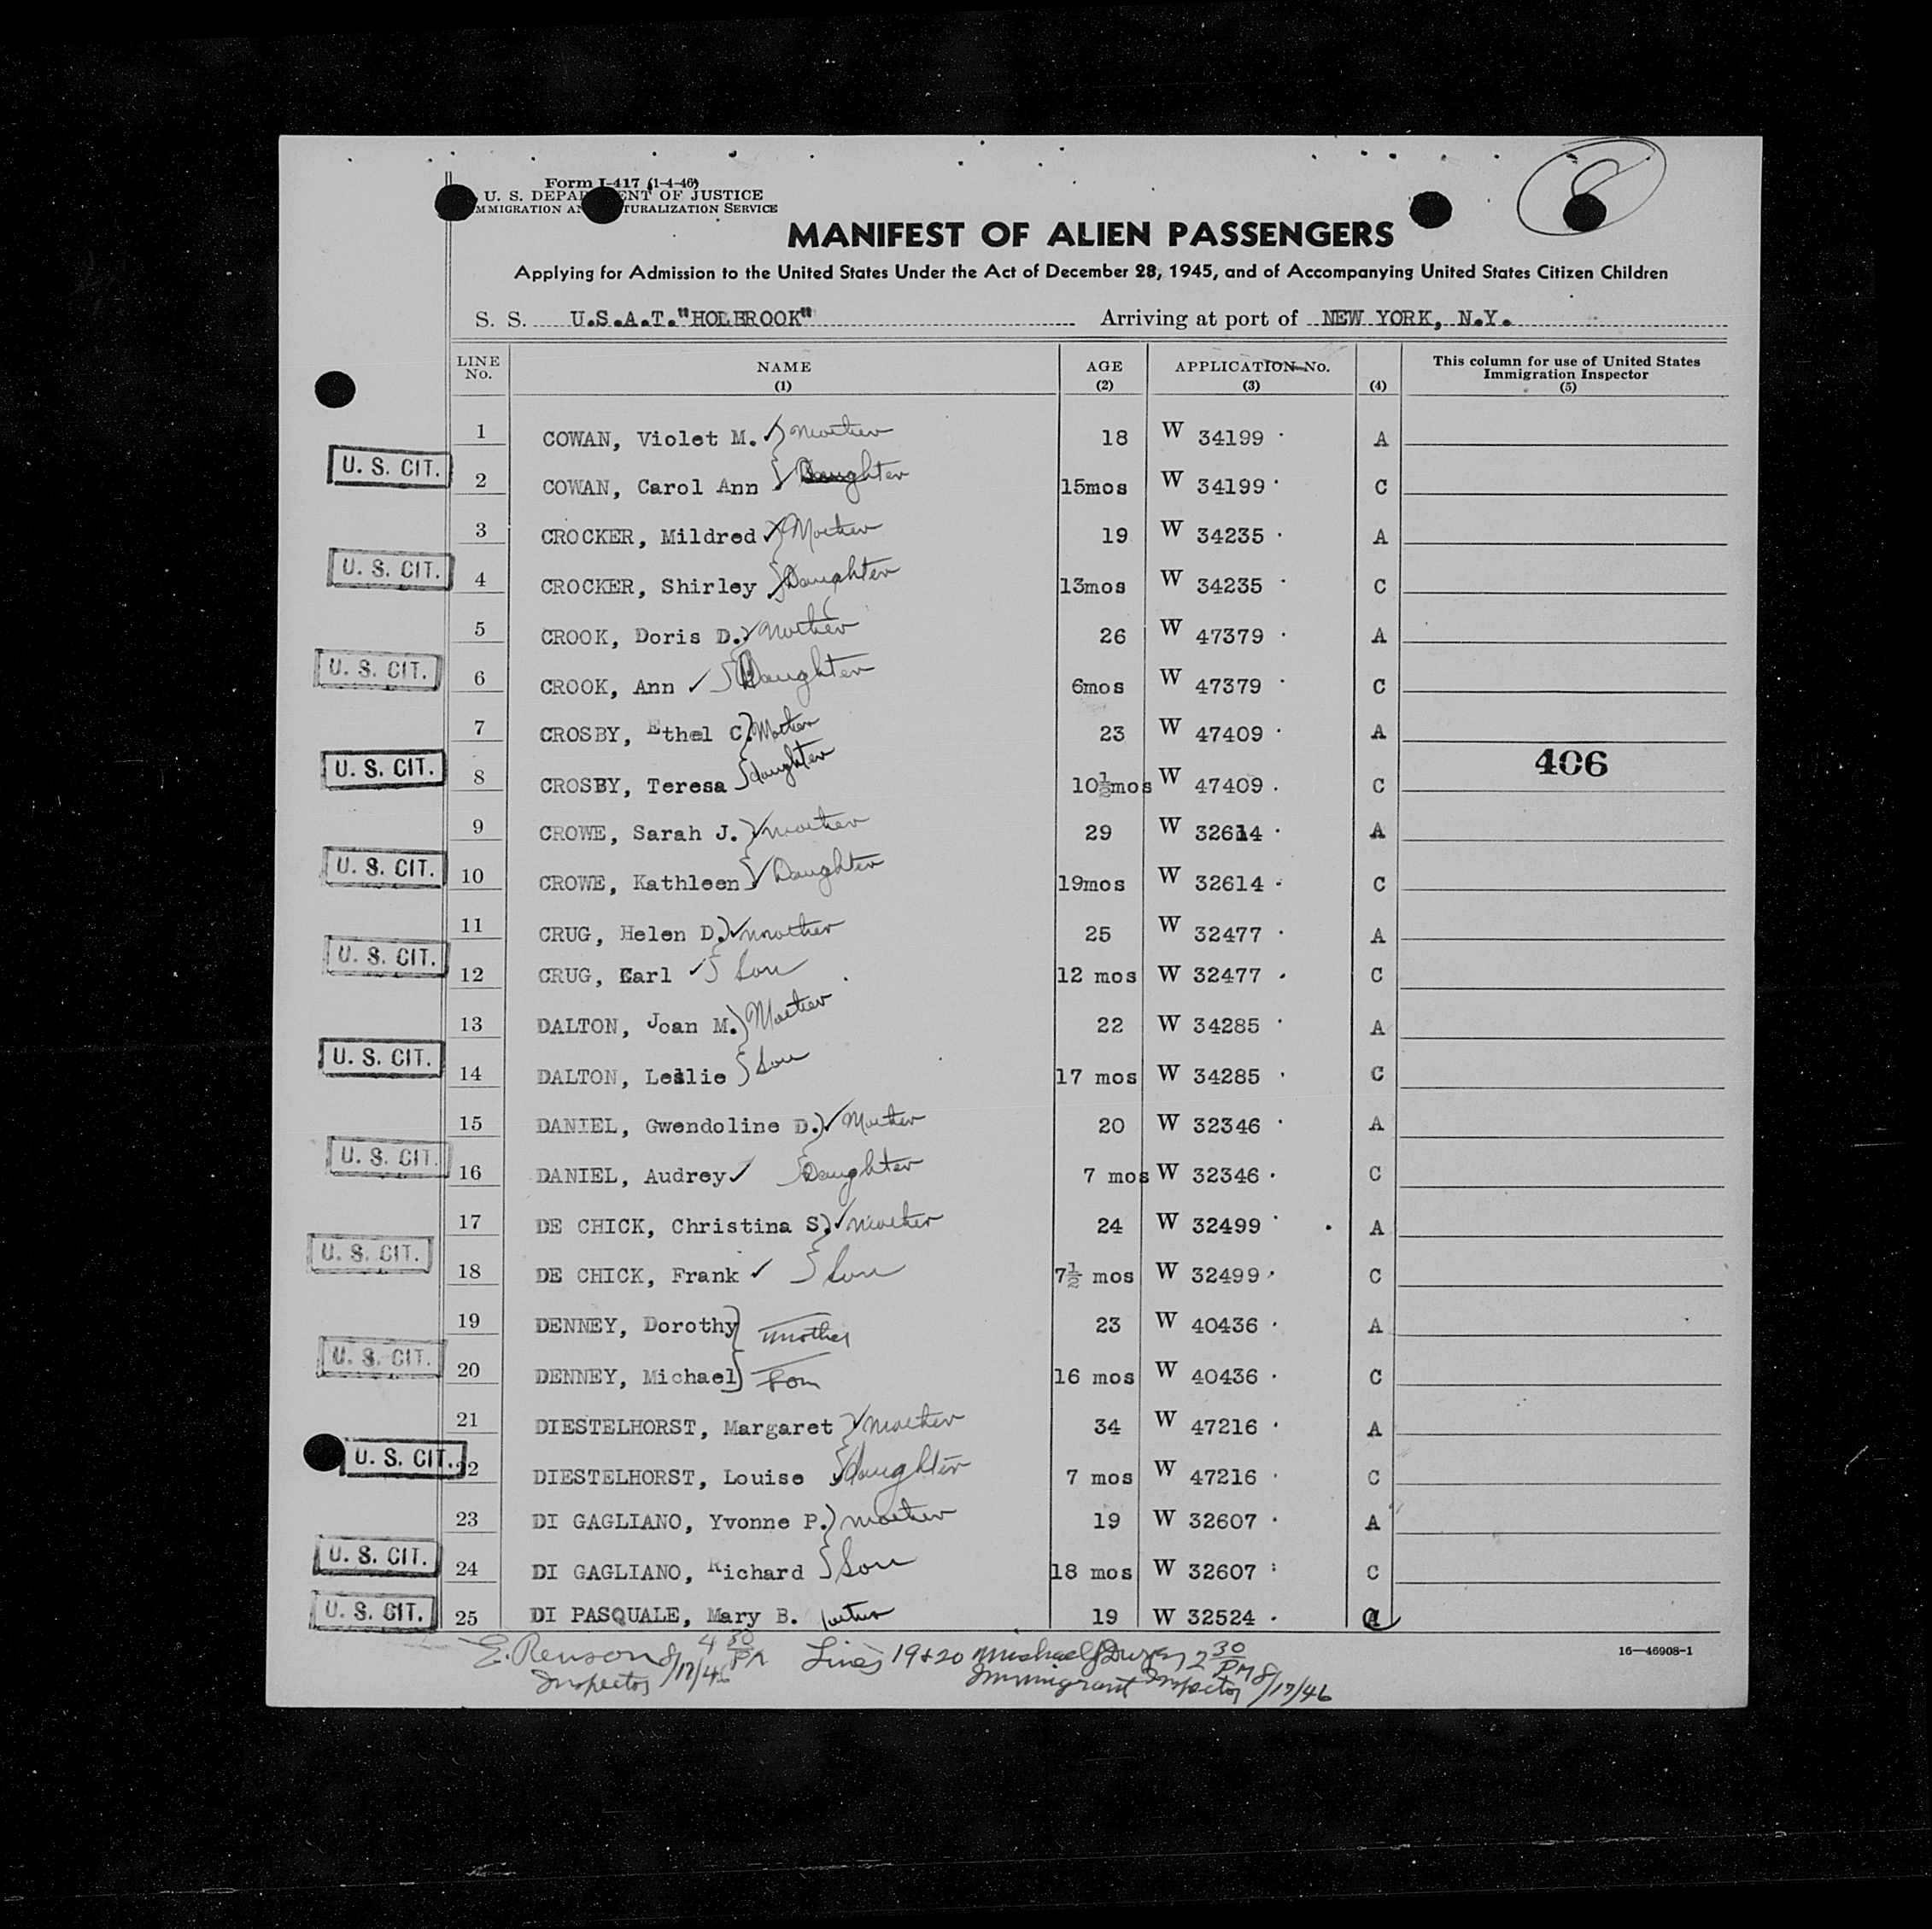 8
Form I-417 (1-4-46)
U. S. DEPA ENT OF JUSTICE
MMIGRATION AN TURALIZATION SERVICE
MANIFEST OF ALIEN PASSENGERS
Applying for Admission to the United States Under the Act of December 28, 1945, and of Accompanying United States Citizen Children
S. S. U.S.A.T."HOLBROOK" Arriving at port of NEW YORK, N.Y.
LINE No. NAME (1) AGE (2) APPLICATION No. (3) (4) This column for use of United States Immigration Inspector (5)
1 COWAN, Violet M. Mother 18 W 34199 A
U. S. CIT. 2 COWAN, Carol Ann Daughter 15mos W 34199 C
3 CROCKER, Mildred Mother 19 W 34235 A
U. S. CIT. 4 CROCKER, Shirley Daughter 13mos W 34235 C
5 CROOK, Doris D. Mother 26 W 47379 A
U. S. CIT. 6 CROOK, Ann Daughter 6mos W 47379 C
7 CROSBY, Ethel C. Mother 23 W 47409 A
U. S. CIT. 8 CROSBY, Teresa daughter 10½mos W 47409 C 406
9 CROWE, Sarah J. mother 29 W 32614 A
U. S. CIT. 10 CROWE, Kathleen Daughter 19mos W 32614 C
11 CRUG, Helen D. mother 25 W 32477 A
U. S. CIT. 12 CRUG, Carl Son 12 mos W 32477 C
13 DALTON, Joan M. Mother 22 W 34285 A
U. S. CIT. 14 DALTON, Leslie Son 17 mos W 34285 C
15 DANIEL, Gwendoline D. Mother 20 W 32346 A
U. S. CIT. 16 DANIEL, Audrey Daughter 7 mos W 32346 C
17 DE CHICK, Christina S. mother 24 W 32499 A
U. S. CIT. 18 DE CHICK, Frank Son 7½ mos W 32499 C
19 DENNEY, Dorothy mother 23 W 40436 A
U. S. CIT. 20 DENNEY, Michael Son 16 mos W 40436 C
21 DIESTELHORST, Margaret mother 34 W 47216 A
U. S. CIT. 22 DIESTELHORST, Louise daughter 7 mos W 47216 C
23 DI GAGLIANO, Yvonne P. mother 19 W 32607 A
U. S. CIT. 24 DI GAGLIANO, Richard Son 18 mos W 32607 C
U. S. CIT. 25 DI PASQUALE, Mary B. 19 W 32524 A
16—46908-1
E. Renson 8/17/46 4 30 PM Lines 19+20 Michael J 2 30 PM 8/17/46
Inspector Immigrant Inspector